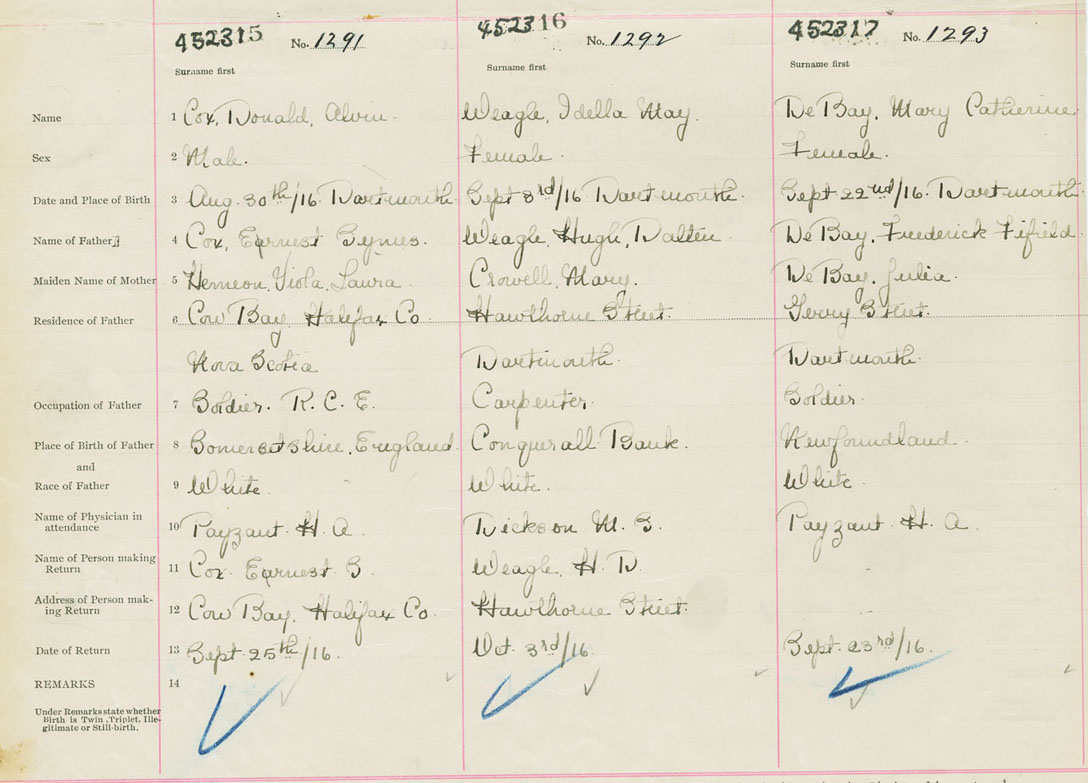 452315 No. 1291 452316 No. 1292 452317 No. 1293
Surname first Surname first Surname first
Name 1 Cox, Donald, Alvin. Weagle, Idella May. De Bay, Mary Catherine
Sex 2 Male. Female. Female.
Date and Place of Birth 3 Aug. 30th/16. Dartmouth. Sept 3rd/16 Dartmouth. Sept. 22nd/16. Dartmouth.
Name of Father 4 Cox, Earnest Weagle, Hugh, Dalten. De Bay, Frederick Fifield.
Maiden Name of Mother 5 Hemeon, Viola, Laura. Crowell, Mary. De Bay, Julia.
Residence of Father 6 Cow Bay, Halifax Co. Hawthorne Street. Street.
Nova Scotia Dartmouth. Dartmouth.
Occupation of Father 7 Soldier. R. C. E. Carpenter. Soldier.
Place of Birth of Father 8 Somersetshire, England. Conquerall Bank. Newfoundland.
and
Race of Father 9 White. White. White.
Name of Physician in
attendance 10 Payzant. H. A. Dickson M. S. Payzant. H. A.
Name of Person making
Return 11 Cox. Earnest S. Weagle, H. D.
Address of Person mak-
ing Return 12 Cow Bay, Halifax Co. Hawthorne Street.
Date of Return 13 Sept. 25th/16. Oct. 3rd/16. Sept. 23rd/16.
REMARKS 14
Under Remarks state whether
Birth is Twin, Triplet, Ille-
gitimate or Still-birth.